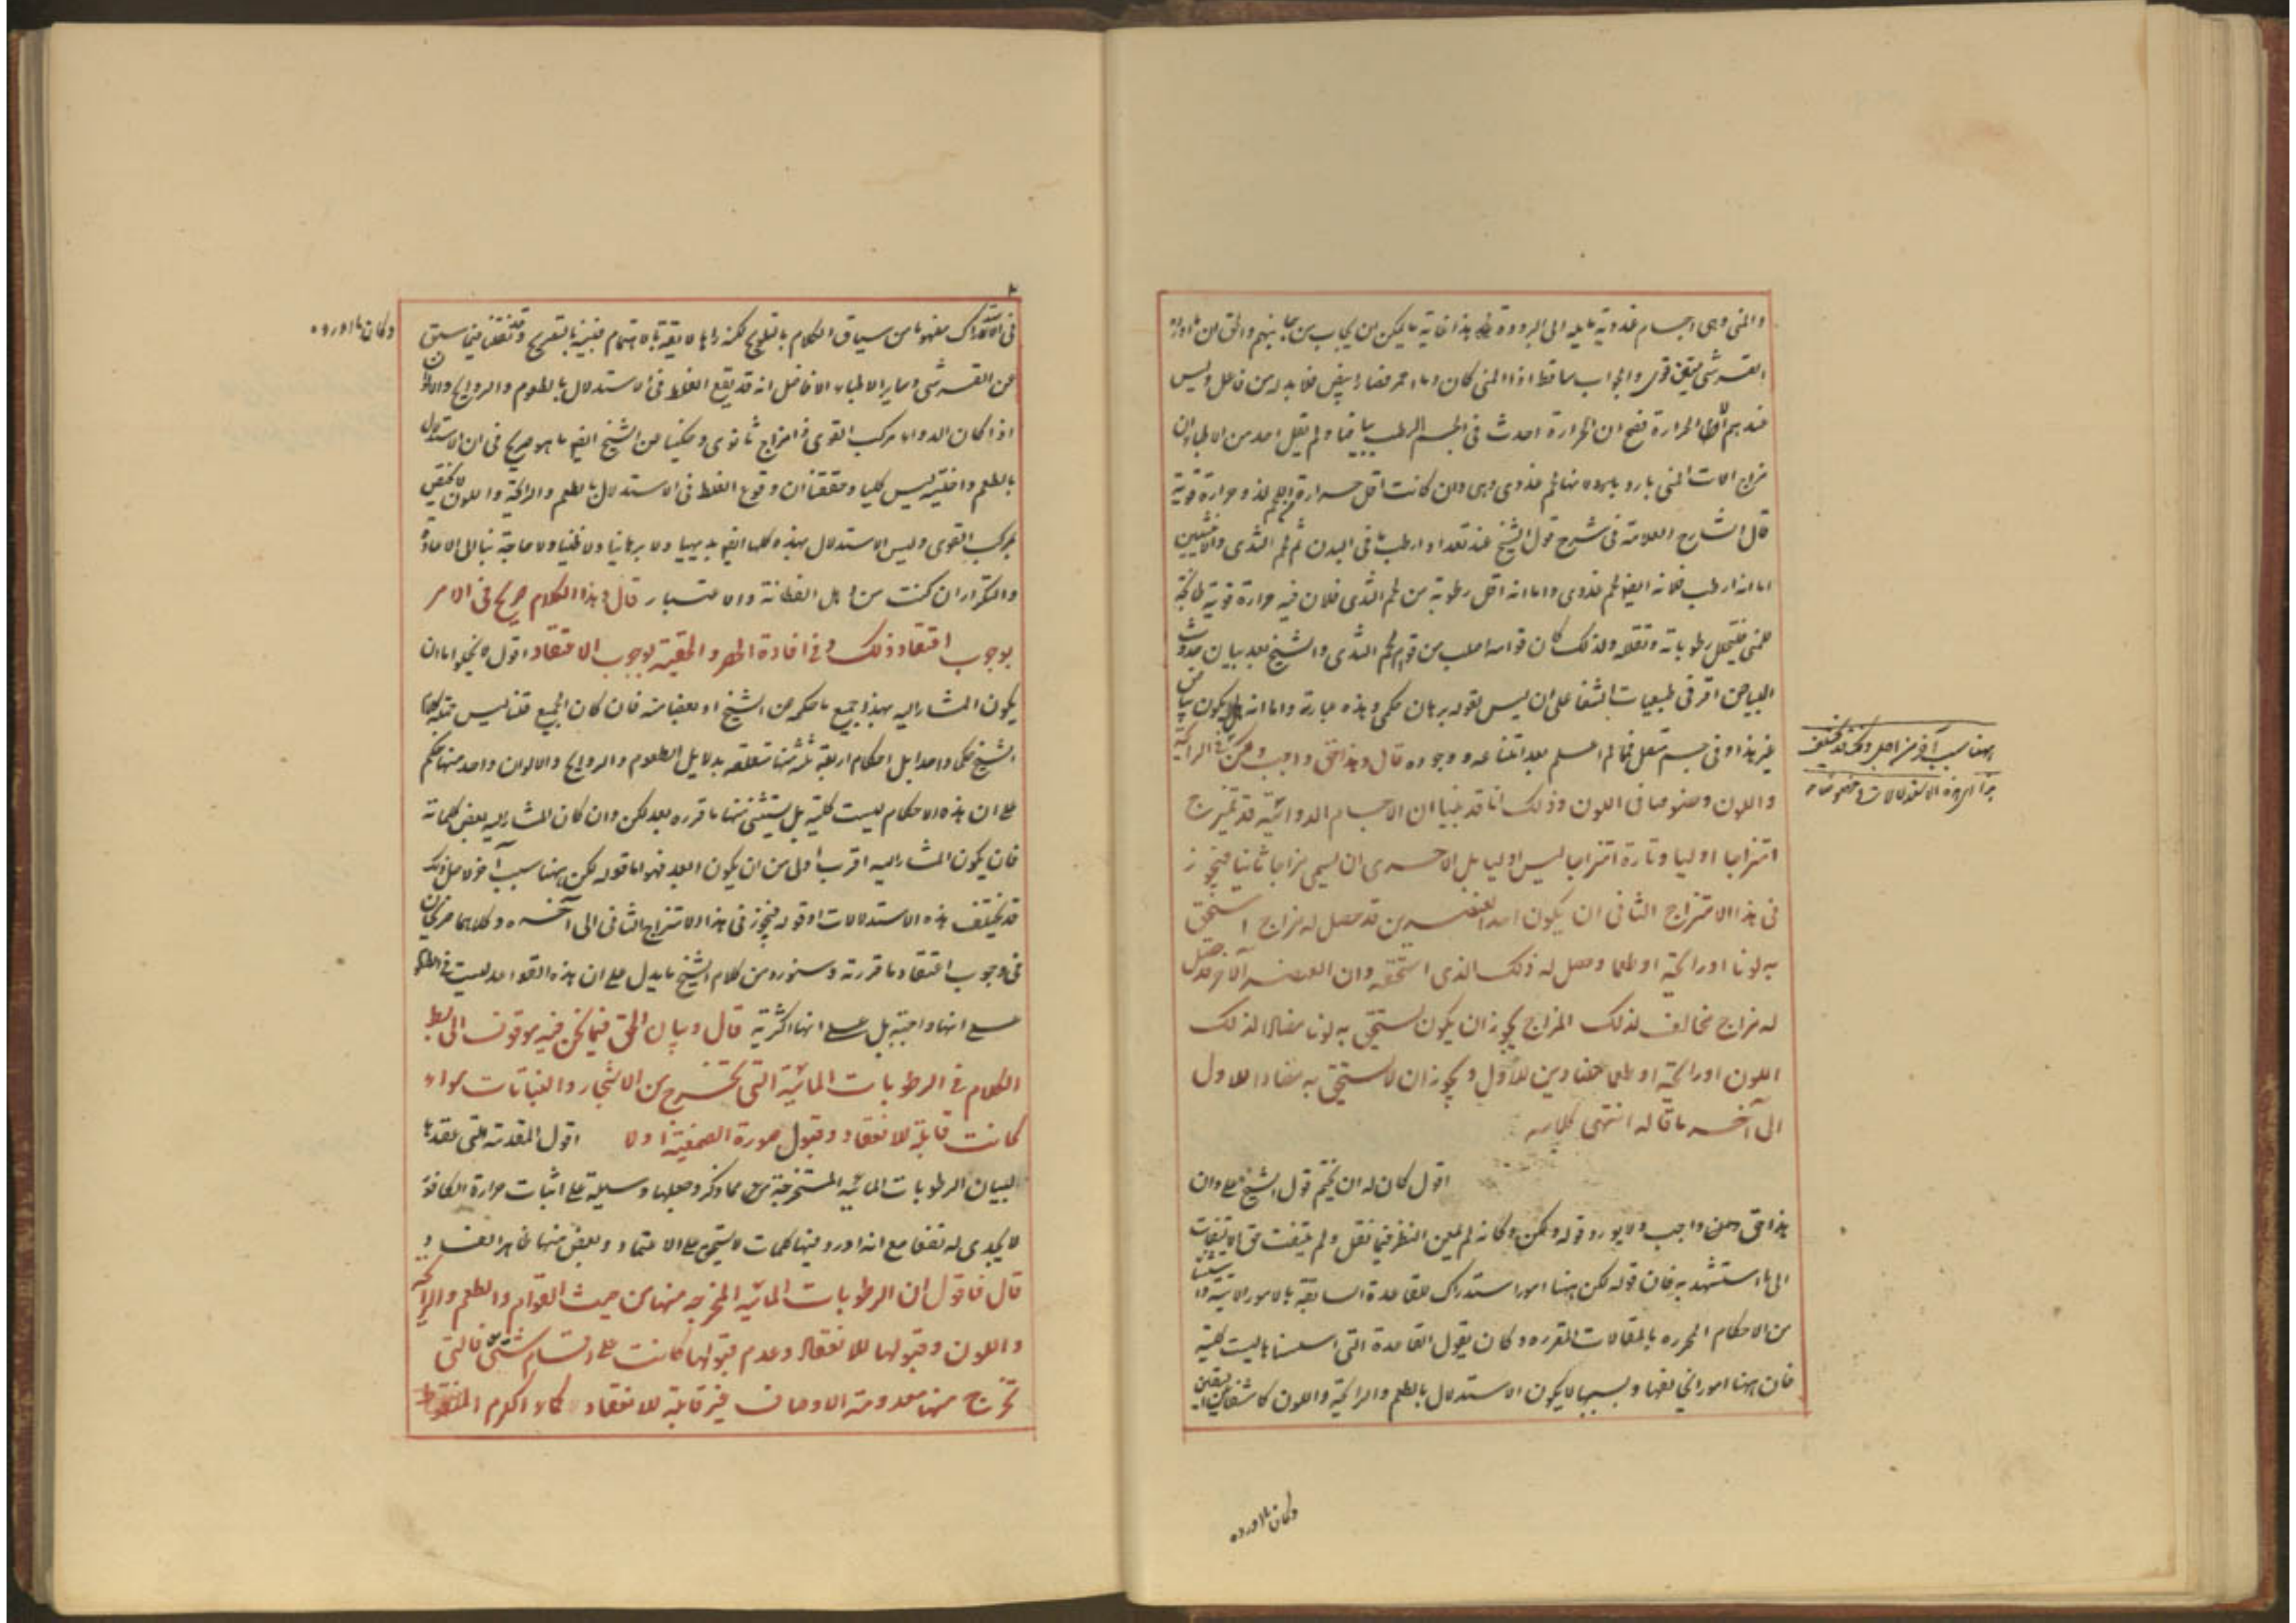 والمنى وهى اجسام غددية مايله الى البرودة هذا غاية ما يمكن ان يجاب من جانبهم والحق ان ما اورده
القرشى متين قوى والجواب ساقط اذا المنى كان دما احمر فصار ابيض فلا بد له من فاعل وليس
عندهم الا الحرارة فصح ان الحرارة احدث فى الجسم الرطب بياضا ولم يقل احد من الاطباء ان
مزاج الات المنى بارد لحم غددى وهى وان كانت اقل حرارة قوية
قال الشارح العلامة فى شرح قول الشيخ عند تعداد ارطب ما فى البدن ثم لحم الثدى والانثيين
اما انه ارطب فلانه ايضا لحم غددى واما انه اقل رطوبة من لحم الثدى فلان فيه حرارة قوية طابخة
للمنى فيتحلل رطوباته وتقلله ولذلك كان قوامه اصلب من قوام لحم الثدى والشيخ بعد بيان حدوث
البياض اقر فى طبيعيات الشفا على ان ليس بقوله برهان حكمى وهذه عبارته واما انه هل يكون بياض
غير هذا وفى جسم متصل فمالم اعلم بعد امتناعه ووجوده قال وهذا حق واجب ولكن فى الرائحة
واللون وخصوصا فى اللون وذلك انا قد بينا ان الاجسام الدوائية قد تمتزج
امتزاجا اوليا وتارة امتزاجا ليس اوليا بل الاحرى ان يسمى مزاجا ثانيا فيجوز
فى هذا الامتزاج الثانى ان يكون احد العنصرين قد حصل له مزاج استحق
به لونا او رائحة او طعما وحصل له ذلك الذى استحقه وان العنصر الآخر حصل
له مزاج مخالف لذلك المزاج يجوز ان يكون يستحق به لونا مضادا لذلك
اللون او رائحة او طعما مضادين للاول ويجوز ان لا يستحق به مضادا للاول
الى آخر ما قاله انتهى كلامه
اقول كان له ان يختم قول الشيخ على وان
هذا حق واجب ولا يورد قوله ولكن وكانه لم يمعن النظر فيما نقل ولم يلتفت حق الالتفات
الى ما استشهد به فان قوله لكن ههنا امور استدراك للقاعدة السابقة بالامور الاتية
من الاحكام المحرره بالمقالات المقرره وكان يقول القاعدة التى اسسناها ليست كلية
فان ههنا امور اتخالفها وبسببها لا يكون الاستدلال بالطعم والرائحة واللون كاشفا
ههنا سبب آخر من اجله
هذه الاستدلالات
وكان ما اورده
فى الاستدراك مفهوما من سياق الكلام بالتلويح لكنه راها لايقة بالاهتمام فبينه بالتصريح وقد نقلنا فيما سبق
عن القرشى وساير الاطباء الافاضل انه قد يقع الغلط فى الاستدلال بالطعوم والروايح والالوان
اذا كان الدواء مركب القوى ذا مزاج ثانوى وحكينا عن الشيخ ايضا ما هو صريح فى ان الاستدلال
بالطعم واختيه ليس كليا وحققنا ان وقوع الغلط فى الاستدلال بالطعم والرائحة واللون لا يختص
بمركب القوى وليس الاستدلال بهذه كلها ايضا بديهيا ولا برهانيا ولا ظنيا ولا حاجة بنا الى الاعادة
والتكرار ان كنت من اهل الفطانة والاعتبار قال وهذا الكلام صريح فى الامر
بوجوب اعتقاد ذلك وفى افادة الحصر والحقية بوجوب الاعتقاد اقول لا يخلوا اما ان
يكون المشار اليه بهذا جميع ما حكم من الشيخ او بعضا منه فان كان الجميع فقلنا ليس
الشيخ حكما واحدا بل احكام اربعة ثلثة منها متعلقه بدلايل الطعوم والروايح والالوان وواحد منها حكم
على ان هذه الاحكام ليست كلية بل يستثنى منها ما قرره بعد لكن وان كان المشار اليه بعض كلماته
فان يكون المشار اليه اقرب اولى من ان يكون ابعد فهو اما قوله لكن ههنا سبب آخر من اجله
قد يختلف هذه الاستدلالات او قوله فيجوز فى هذا الامتزاج الثانى الى آخره وكلاهما صريحان
فى وجوب اعتقاد ما قررته وسنورد من كلام الشيخ ما يدل على ان هذه القواعد ليست
على انها واجبة بل على انها اكثرية قال وبيان الحق فيما نحن فيه موقوف الى بسط
الكلام فى الرطوبات المائية التى تخرج من الاشجار والنباتات سواء
كانت قابلة للانعقاد وقبول صورة الصمغية او لا اقول المقدمة التى عقدها
لبيان الرطوبات المائيه المستخرجة مما ذكر وجعلها وسيلة على اثبات حرارة الكافور
لا يجدى له نفعا مع انه اورد فيها كلمات لا يستحق على الاعتماد وبعض منها ظاهر الفساد
قال فاقول ان الرطوبات المائيه المخرجه منها من حيث القوام والطعم والرائحة
واللون وقبولها للانعقاد وعدم قبولها كانت على اقسام شتى فالتى
تخرج منها معدومة الاوصاف غير قابلة للانعقاد كماء الكرم
وكان ما اورده